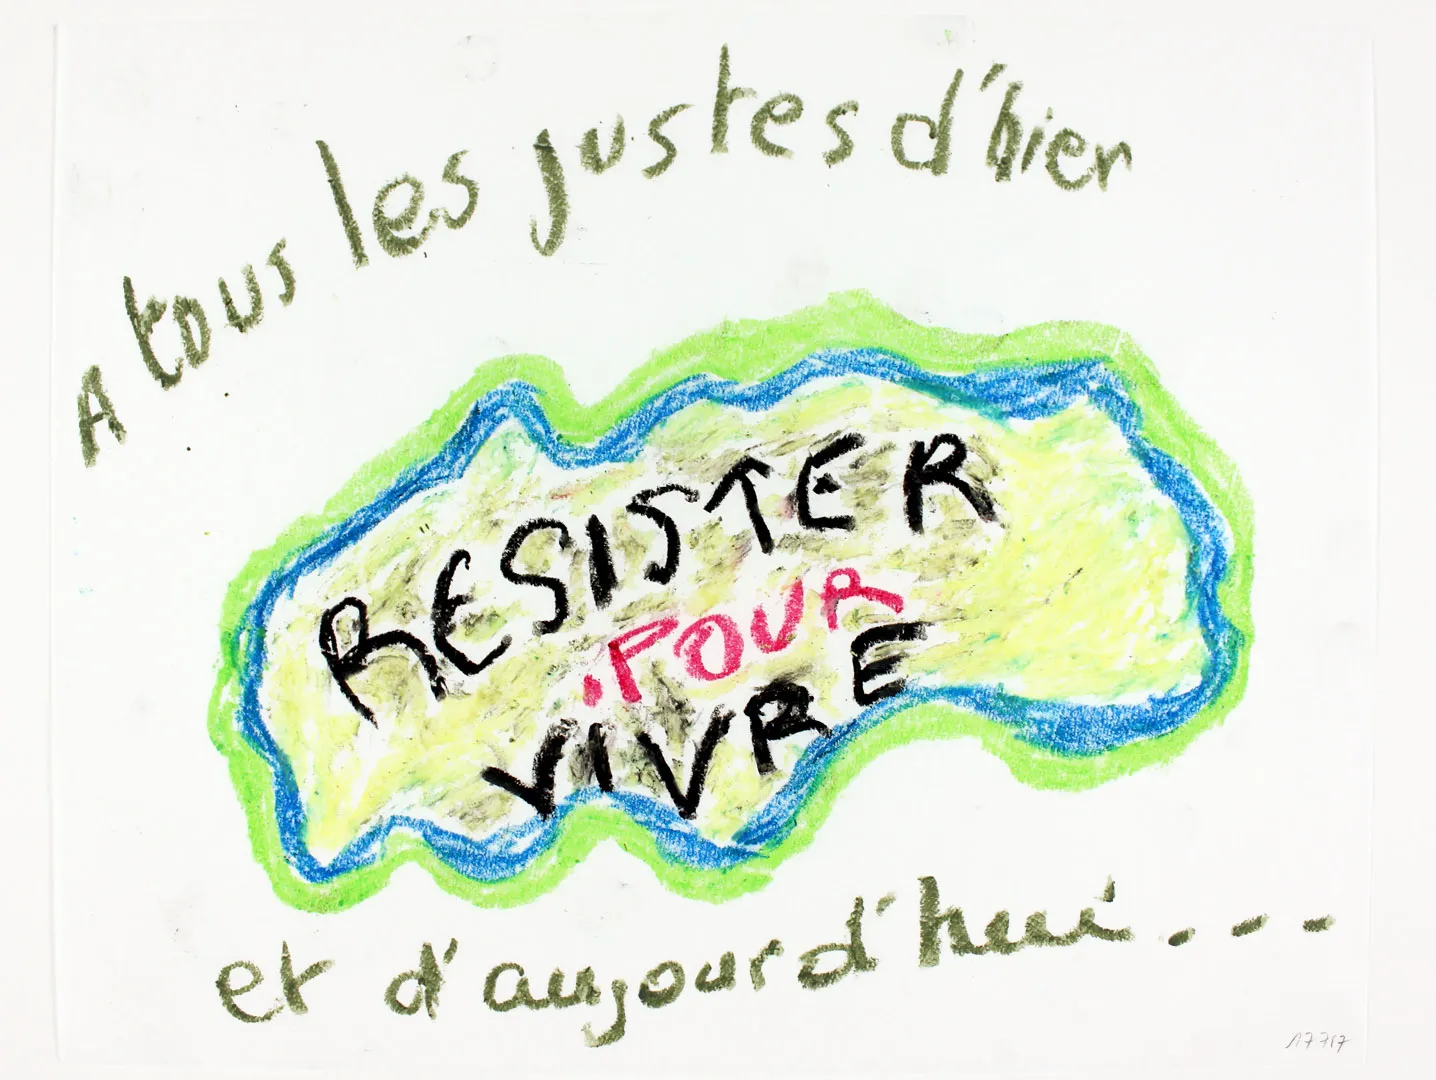 A tous les justes d'hier
RESISTER
.POUR
VIVRE
et d'aujourd'hui....